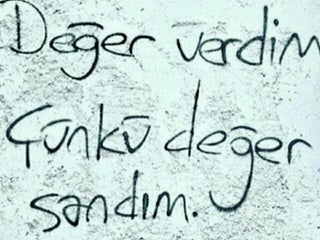 Değer verdim
Çünkü değer
sandım.